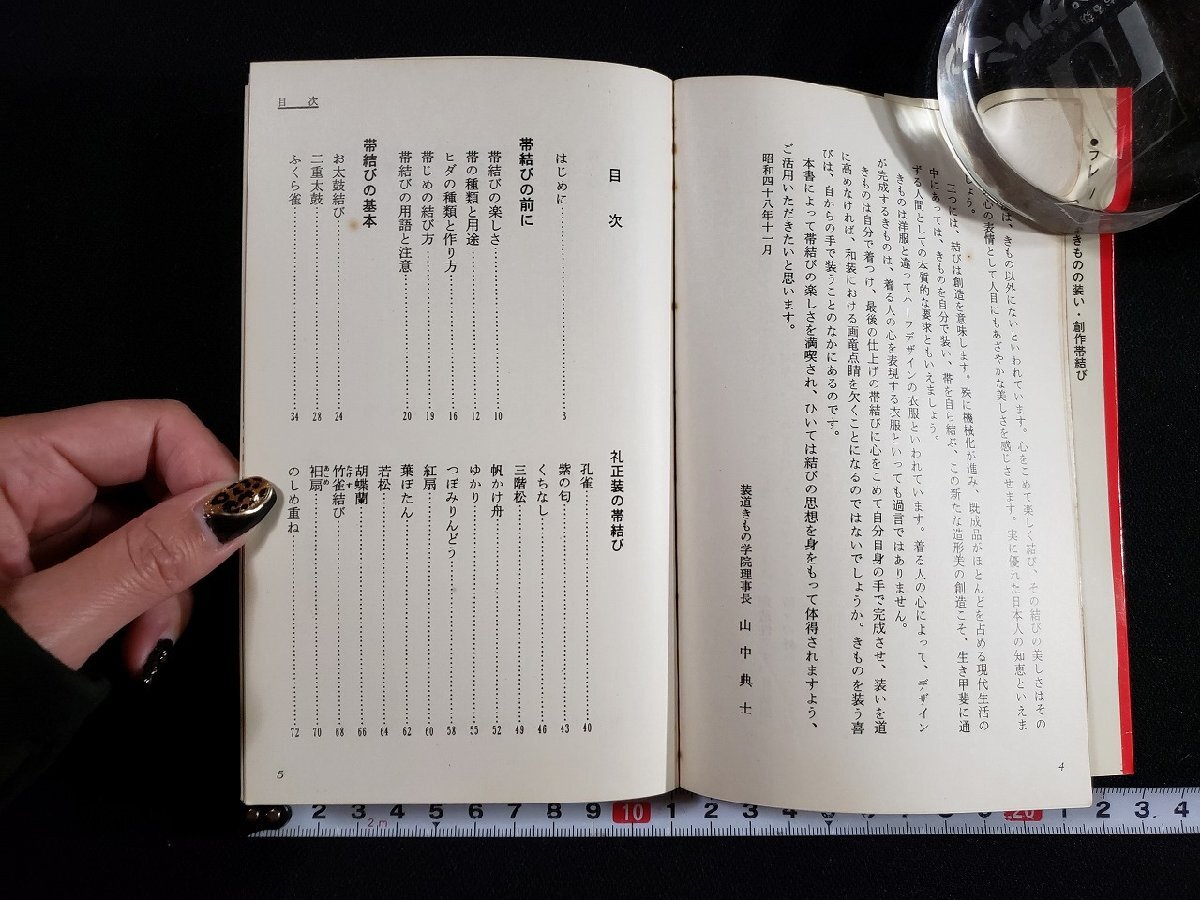 きものの装い・創作帯結び
は、きもの以外にないといわれています。心をこめて楽しく結び、その結びの美しさはその
心の表情として人目にもあざやかな美しさを感じさせます。実に優れた日本人の知恵といえま
しょう。
二つには、結びは創造を意味します。殊に機械化が進み、既成品がほとんどを占める現代生活の
中にあっては、きものを自分で装い、帯を自ら結ぶ、この新たな造形美の創造こそ、生き甲斐に通
ずる人間としての本質的な要求ともいえましょう。
きものは洋服と違ってハーフデザインの衣服といわれています。着る人の心によって、デザイン
が完成するきものは、着る人の心を表現する衣服といっても過言ではありません。
きものは自分で着つけ、最後の仕上げの帯結びに心をこめて自分自身の手で完成させ、装いを道
に高めなければ、和装における画竜点睛を欠くことになるのではないでしょうか、きものを装う喜
びは、自からの手で装うことのなかにあるのです。
本書によって帯結びの楽しさを満喫され、ひいては結びの思想を身をもって体得されますよう、
ご活用いただきたいと思います。
昭和四十八年十一月
装道きもの学院理事長 山中典士
4
目次
目次
はじめに 3
帯結びの前に
帯結びの楽しさ 10
帯の種類と用途 12
ヒダの種類と作り方 16
帯じめの結び方 19
帯結びの用語と注意 20
帯結びの基本
お太鼓結び 24
二重太鼓 28
ふくら雀 34
礼正装の帯結び
孔雀 40
紫の匂 43
くちなし 46
三階松 49
帆かけ舟 52
ゆかり 55
つぼみりんどう 58
紅扇 60
葉ぼたん 62
若松 64
胡蝶蘭 66
竹雀結び 68
衵扇 70
のしめ重ね 72
5
2 3 4 5 6 7 8 9 10 1 2 3 4 5 6 7 8 9 20 1 2 3 4
2m